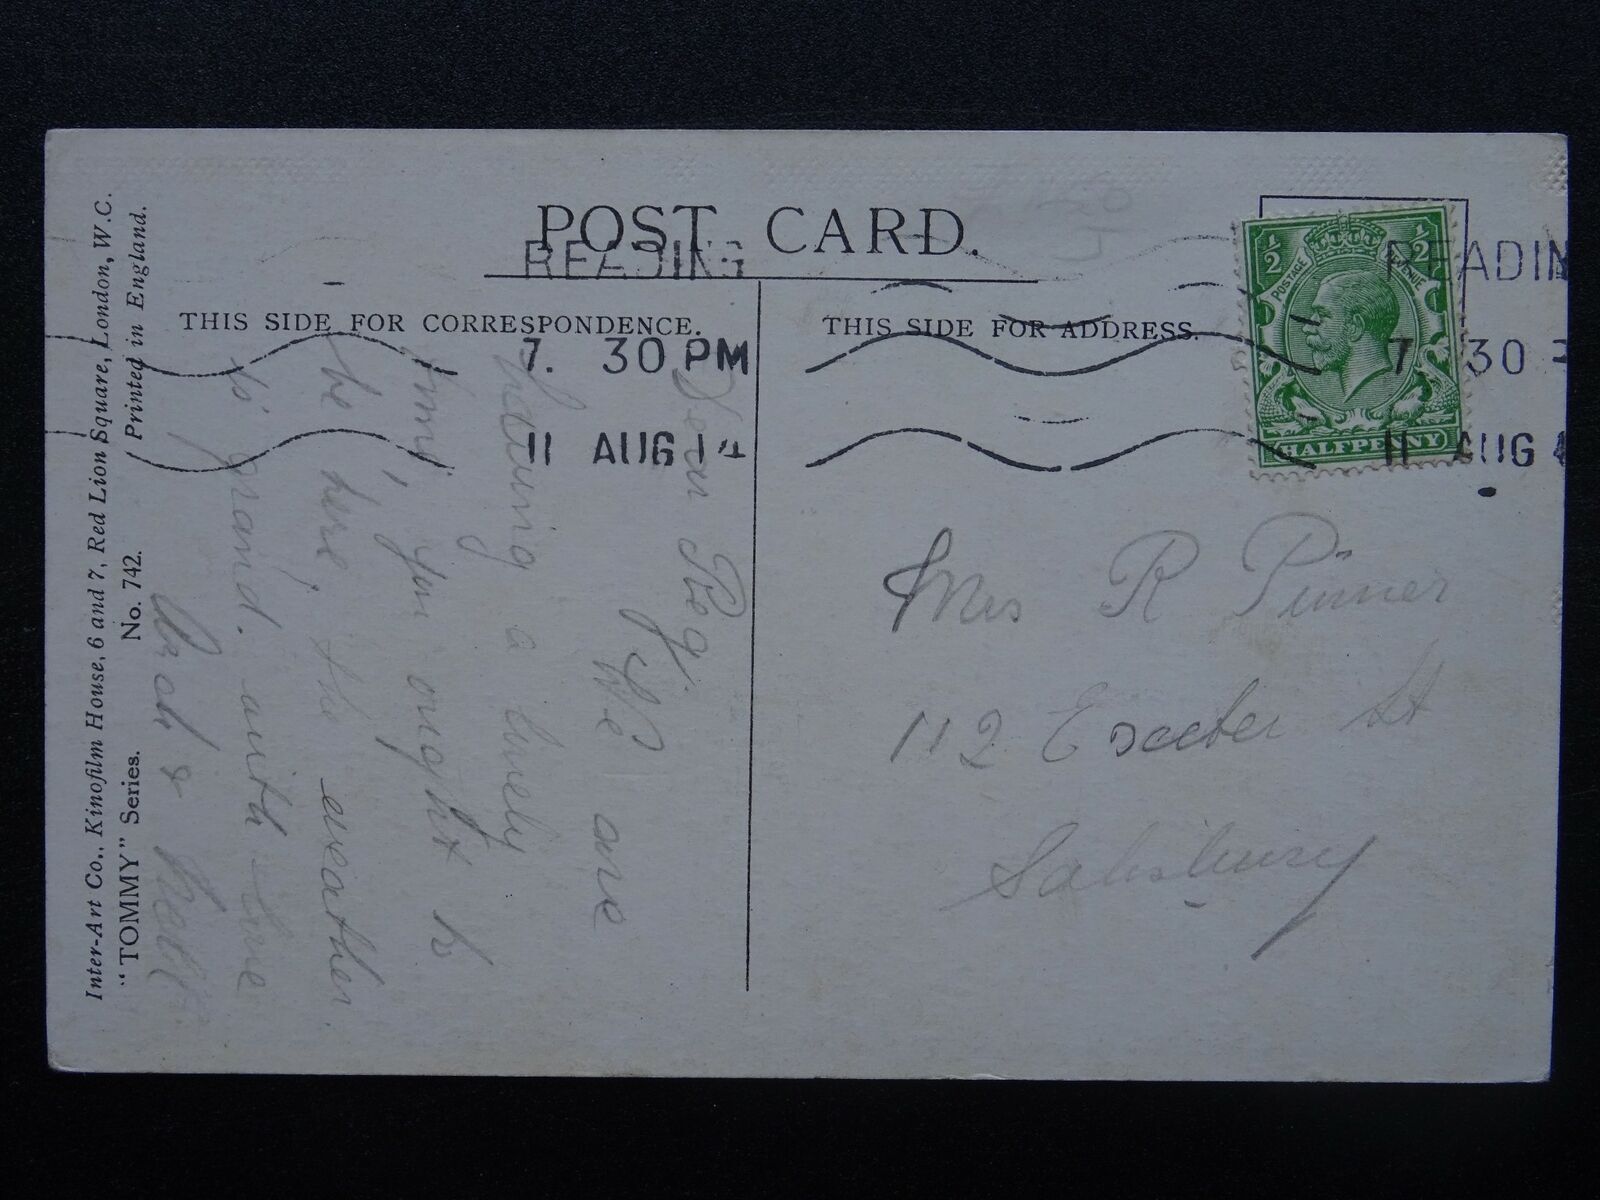 POST CARD.
THIS SIDE FOR CORRESPONDENCE.
THIS SIDE FOR ADDRESS.
READING
7. 30 PM
11 AUG 14
READIN
7 30
11 AUG
½ ½
POSTAGE REVENUE
HALFPENNY
Inter-Art Co., Kinofilm House, 6 and 7, Red Lion Square, London, W.C.
"TOMMY" Series. No. 742. Printed in England.
Dear Peg.
We are
having a lovely
time, you ought to
be here, the weather
is grand. with love
&
Mrs R Pinner
112 Exeter St
Salisbury